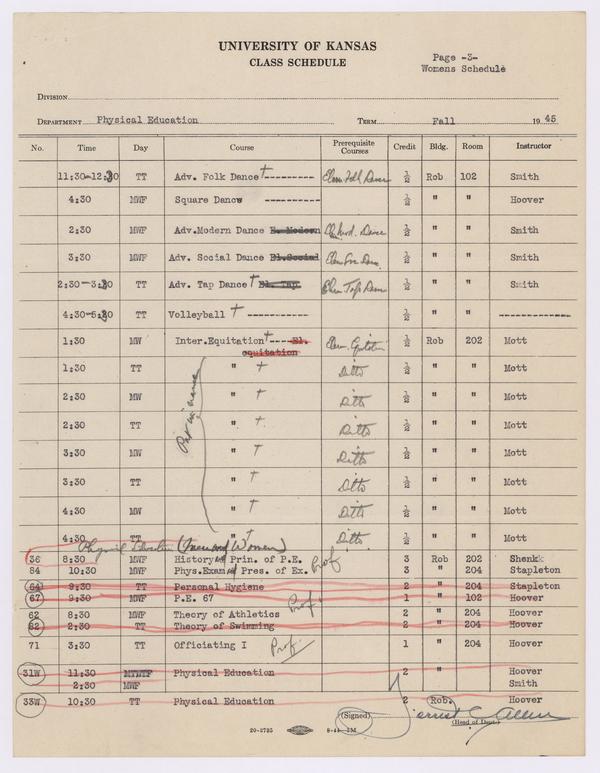 UNIVERSITY OF KANSAS
CLASS SCHEDULE
Page -3-
Womens Schedule
DIVISION
DEPARTMENT Physical Education TERM Fall 1945
No. Time Day Course Prerequisite Courses Credit Bldg. Room Instructor
11:30-12:30 TT Adv. Folk Dance † ---------- Elem Folk Dance ½ Rob 102 Smith
4:30 MWF Square Dance ---------- ½ " " Hoover
2:30 MWF Adv.Modern Dance El. Modern El. Mod. Dance ½ " " Smith
3:30 MWF Adv. Social Dance El.Social Elem Soc Dance ½ " " Smith
2:30-3:30 TT Adv. Tap Dance † El. Tap Elem Tap Dance ½ " " Smith
4:30-5:30 TT Volleyball † ---------- ½ " " -------------
1:30 MW Inter.Equitation † ---- El. equitation Elem. Equitation ½ Rob 202 Mott
1:30 TT " † Ditto ½ " " Mott
2:30 MW " † Ditto ½ " " Mott
2:30 TT " † Ditto ½ " " Mott
3:30 MW " † Ditto ½ " " Mott
3:30 TT " † Ditto ½ " " Mott
4:30 MW " † Ditto ½ " " Mott
4:30 TT " † Ditto ½ " " Mott
Physical Education (Men and Women)
36 8:30 MWF History & Prin. of P.E. 3 Rob 202 Shenk
84 10:30 MWF Phys.Exam & Pres. of Ex. Prof 3 " 204 Stapleton
64 9:30 TT Personal Hygiene 2 " 204 Stapleton
67 9:30 MWF P.E. 67 1 " 102 Hoover
62 8:30 MWF Theory of Athletics Prof 2 " 204 Hoover
82 2:30 TT Theory of Swimming 2 " 204 Hoover
71 3:30 TT Officiating I Prof. 1 " 204 Hoover
31W 11:30 MTWTF Physical Education 2 " Hoover
2:30 MWF Smith
33W 10:30 TT Physical Education 2 Rob. Hoover
(Signed) Forrest C Allen
(Head of Dept.)
20-2725 8-44 3M